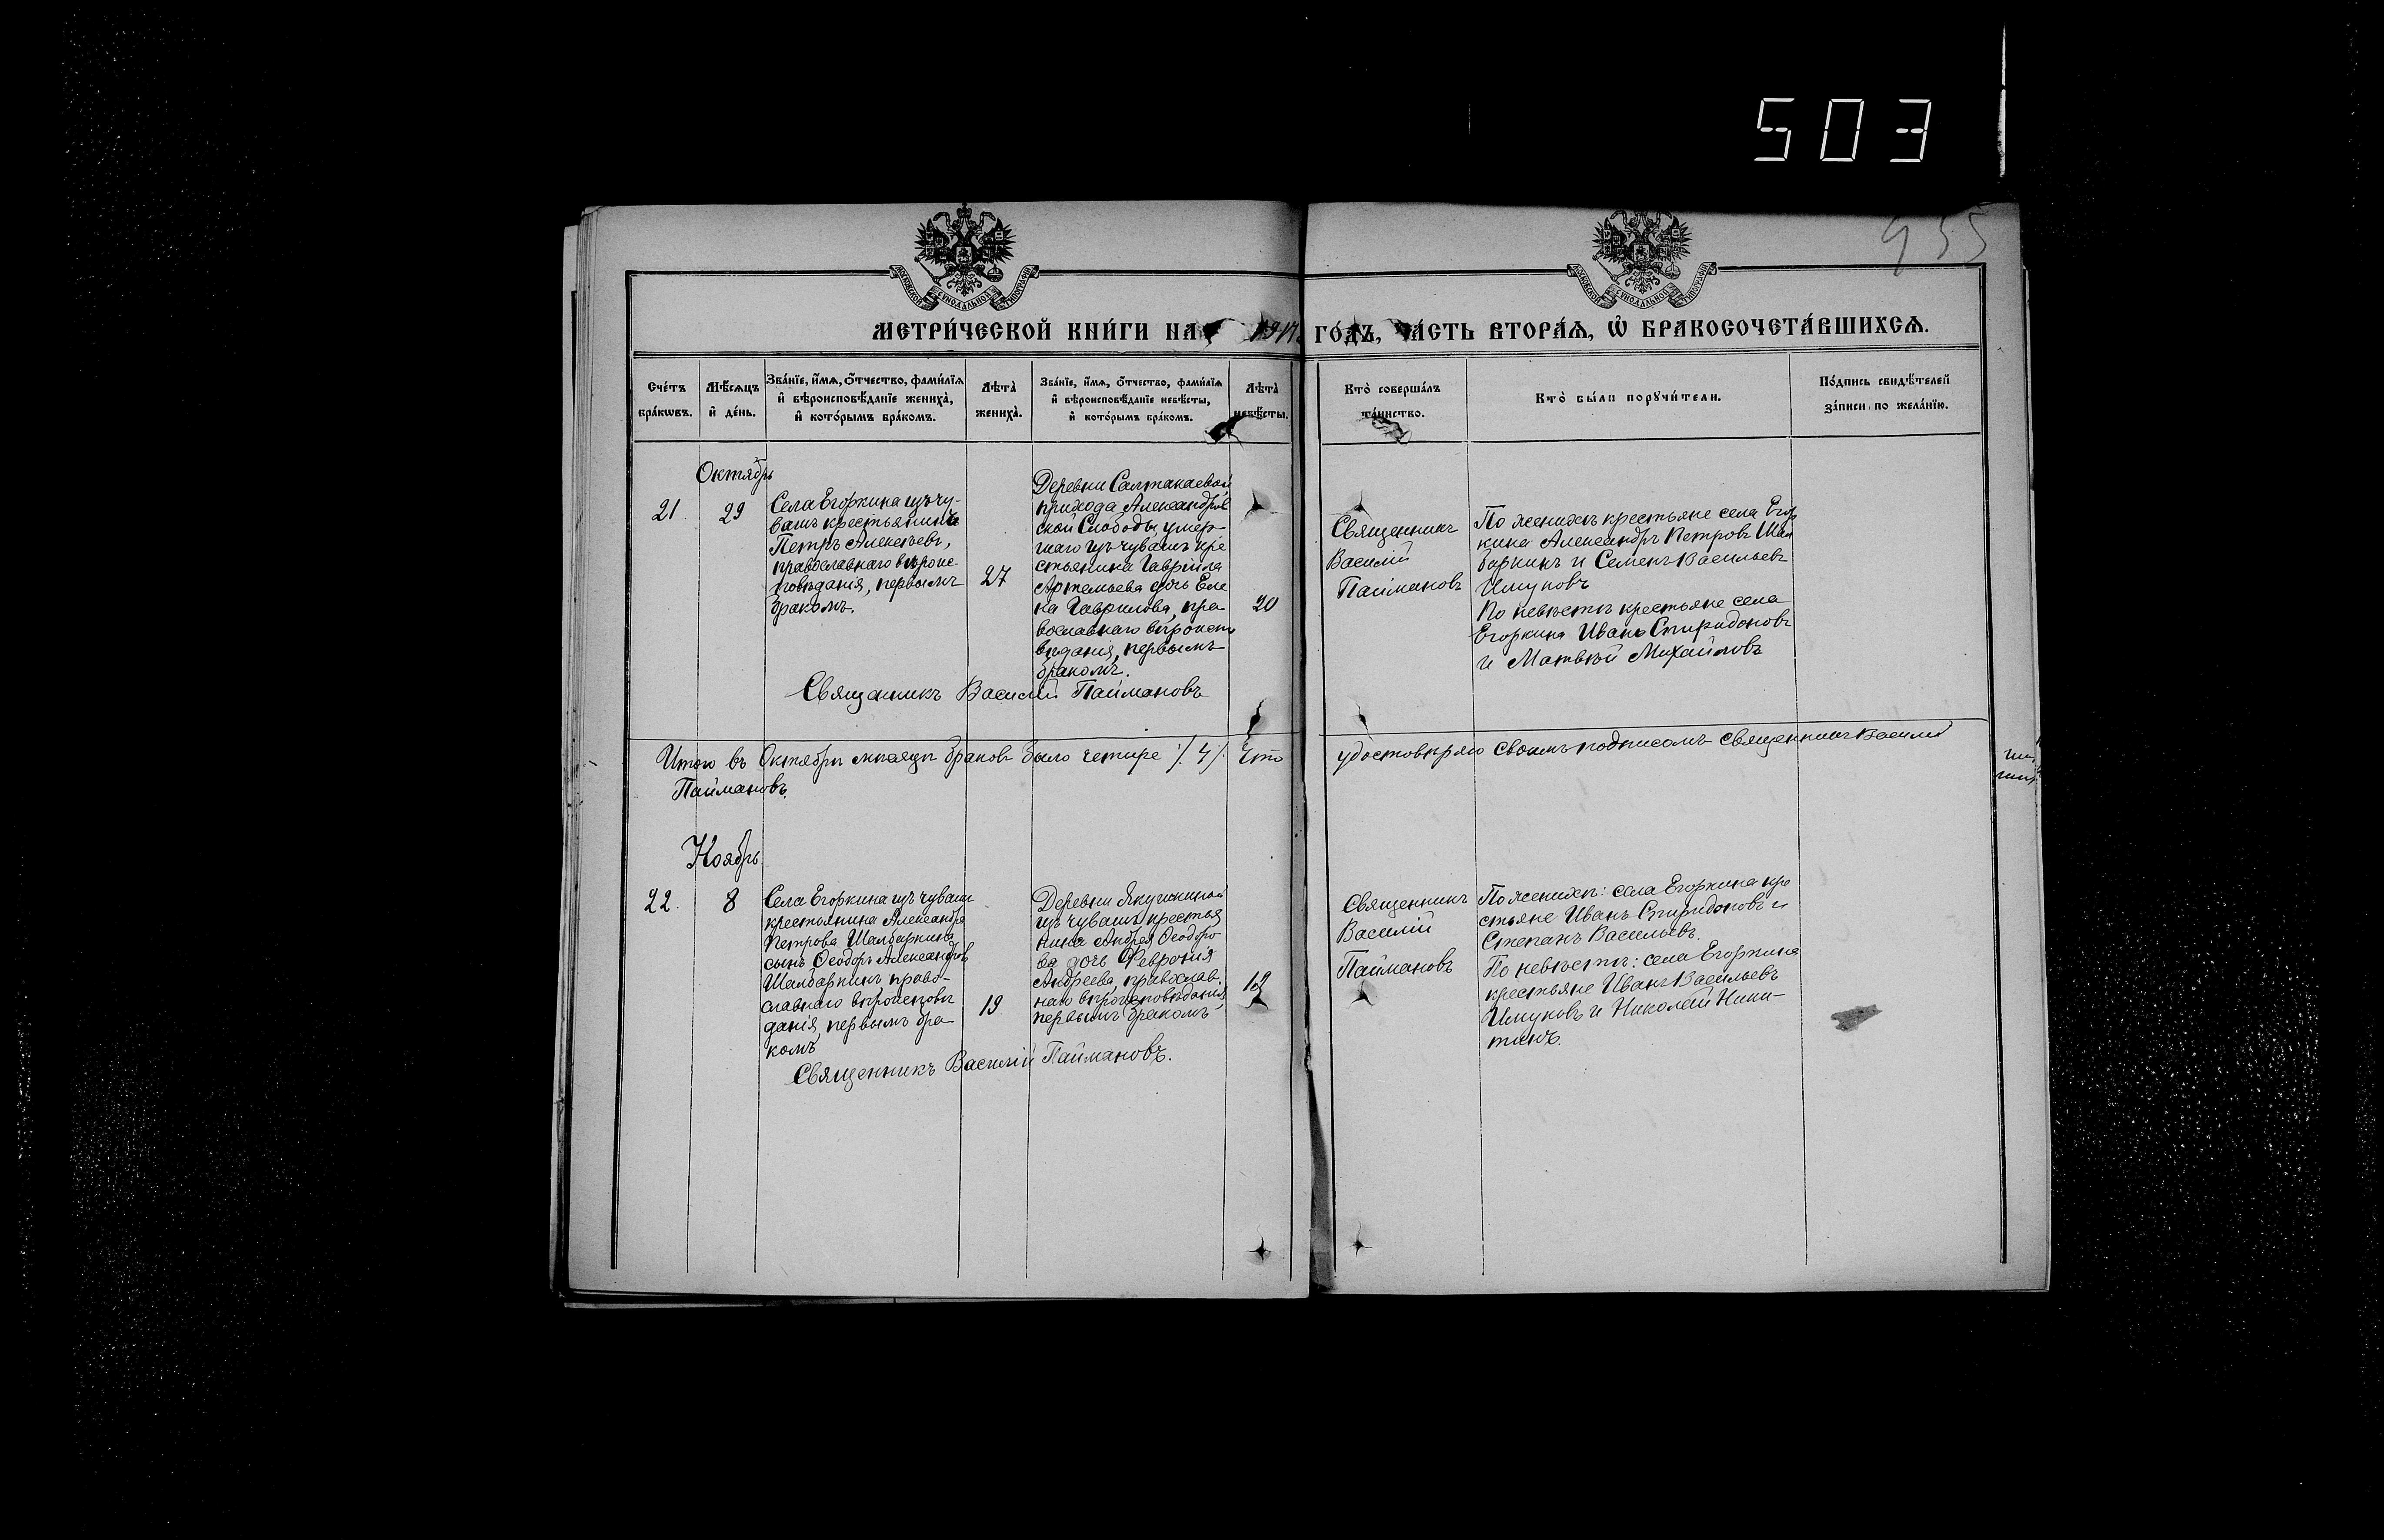 503
955
МОСКОВСКОЙ СѴНОДАЛЬНОЙ ТИПОГРАФІИ
МОСКОВСКОЙ СѴНОДАЛЬНОЙ ТИПОГРАФІИ
МЕТРИ́ЧЕСКОЙ КНИ́ГИ НА 1917 ГО́ДЪ, ЧА́СТЬ ВТОРА́Ѧ, Ѽ БРАКОСОЧЕТА́ВШИХСѦ.
Сче́тъ
бра́кѡвъ.
Мѣ́сѧцъ
и҆ де́нь.
Зва́нїе, и҆́мѧ, ѻ҆́тчество, фами́лїѧ
и҆ вѣроисповѣ́данїе жениха̀,
и҆ кото́рымъ бра́комъ.
Лѣта̀
жениха̀.
Зва́нїе, и҆́мѧ, ѻ҆́тчество, фами́лїѧ
и҆ вѣроисповѣ́данїе невѣ́сты,
и҆ кото́рымъ бра́комъ.
Лѣта̀
невѣ́сты.
Кто̀ соверша́лъ
та́инство.
Кто̀ бы́ли порꙋчи́тели.
По́дпись свидѣ́телей
за́писи по жела́нїю.
Октябрь
21.
29
Села Егоркина изъ чу-
вашъ крестьянинъ
Петръ Алексѣевъ,
православнаго вѣроис-
повѣданія, первымъ
бракомъ.
27
Деревни Салтанаевой
прихода Александров
ской Слободы умер-
шаго изъ чувашъ кре
стьянина Гаврiила
Артемьева дочь Еле
на Гаврилова, пра-
вославнаго вѣроиспо
вѣданія, первымъ
бракомъ.
20
Священникъ
Василій
Паймановъ
По женихѣ крестьяне села Егор
кина Александръ Петровъ Шал
баркинъ и Семенъ Васильевъ
Имуковъ
По невѣстѣ крестьяне села
Егоркина Иванъ Спиридоновъ
и Матвѣй Михайловъ
Священникъ Василій Паймановъ
Итого въ Октябрѣ мѣсяцѣ браковъ было четыре /. 4 /. Что удостовѣряю своимъ подписомъ священникъ Василій
Паймановъ.
Ноябрь.
22.
8
Села Егоркина изъ чувашъ
крестьянина Александра
Петрова Шалбаркина
сынъ Ѳеодоръ Александров
Шалбаркинъ, право-
славнаго вѣроисповѣ
данія, первымъ бра-
комъ
19
Деревни Якушкиной
изъ чувашъ крестья
нина Андрея Ѳеодоро
ва дочь Феврония
Андреева, православ.
наго вѣроисповѣданія,
первымъ бракомъ
19
Священникъ
Василій
Паймановъ
По женихѣ: села Егоркина кре
стьяне Иванъ Спиридоновъ и
Степанъ Васильевъ.
По невѣстѣ: села Егоркина
крестьяне Иванъ Васильевъ
Имуковъ и Николай Ники-
тинъ.
Священникъ Василій Паймановъ.